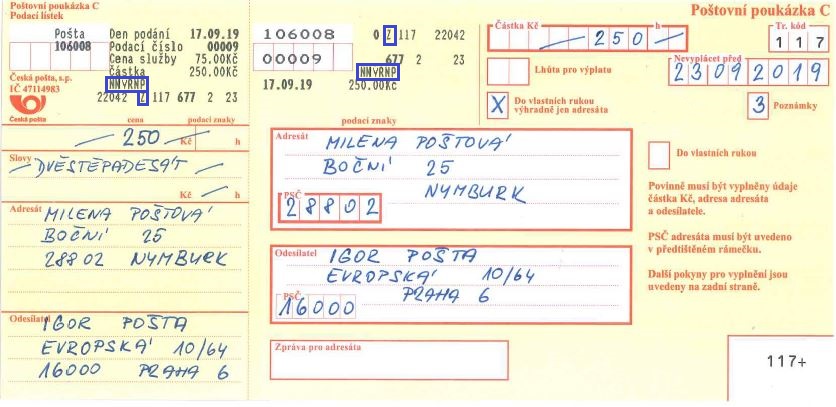 Poštovní poukázka C
Podací lístek
Pošta
106008
Den podání 17.09.19
Podací číslo 00009
Cena služby 75.00Kč
Částka 250.00Kč
NMVRNP
22042 Z 117 677 2 23
Česká pošta, s.p.
IČ 47114983
Česká pošta
cena podací znaky
250 Kč h
Slovy
DVĚSTĚPADESÁT
Kč h
Adresát
MILENA POŠTOVÁ
BOČNÍ 25
28802 NYMBURK
Odesílatel
IGOR POŠTA
EVROPSKÁ 10/64
16000 PRAHA 6
106008 0 Z 117 22042
00009 677 2 23
NMVRNP
17.09.19 250.00Kč
podací znaky
Adresát
MILENA POŠTOVÁ
BOČNÍ 25
NYMBURK
PSČ
28802
Odesílatel
IGOR POŠTA
EVROPSKÁ 10/64
PRAHA 6
PSČ
16000
Zpráva pro adresáta
Poštovní poukázka C
Částka Kč h
250
Tr. kód
117
Lhůta pro výplatu
Nevyplácet před
23092019
X Do vlastních rukou
výhradně jen adresáta
3 Poznámky
Do vlastních rukou
Povinně musí být vyplněny údaje
částka Kč, adresa adresáta
a odesílatele.
PSČ adresáta musí být uvedeno
v předtištěném rámečku.
Další pokyny pro vyplnění jsou
uvedeny na zadní straně.
117+